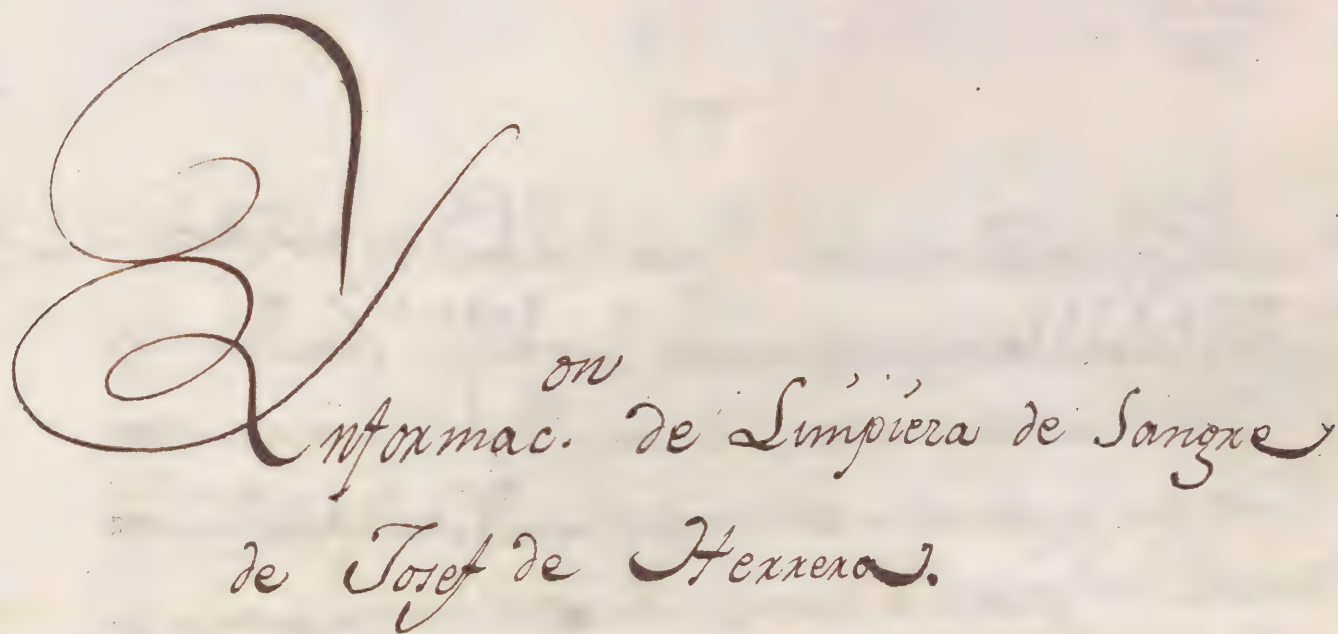 Ynformac.on de Limpieza de Sangre
de Josef de Herrera.